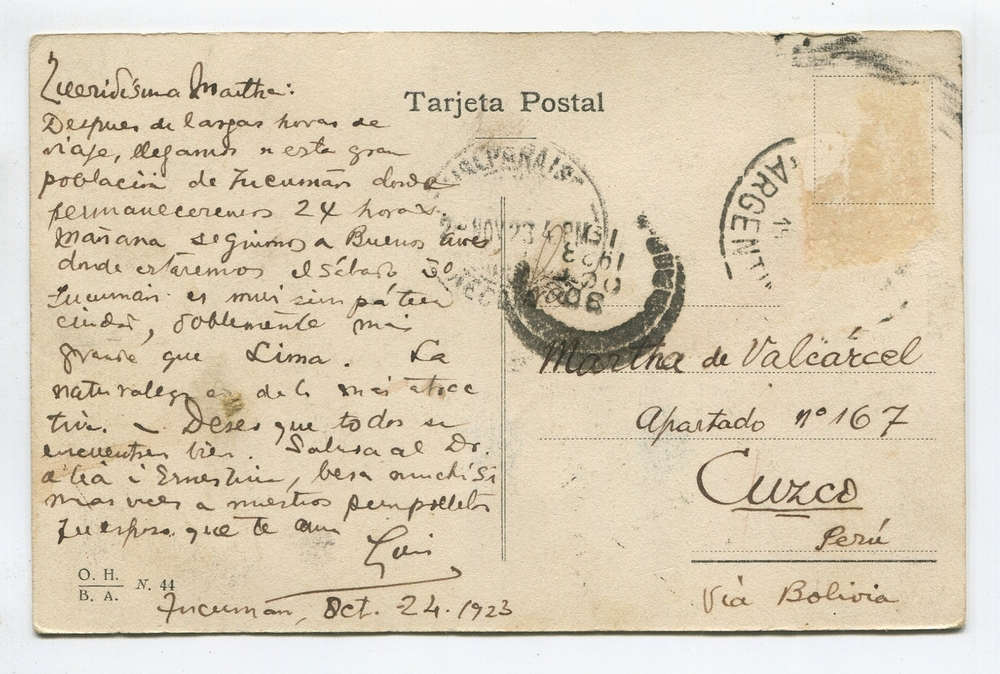 Queridísima Martha:
Despues de largas horas de
viaje, llegamos a esta gran
población de Tucumán donde
permaneceremos 24 horas.
Mañana seguimos a Buenos Aires
donde estaremos el sábado
Tucumán es mui simpática
ciudad, doblemente más
grande que Lima. La
naturaleza de lo más atrac
tiva. – Deseo que todos se
encuentren bien. Saluda al Dr.
a tía i Ernestina, besa muchísi
mas veces a nuestros pimpollitos
Tu esposo que te ama
Luis
Tucumán, Oct. 24. 1923
O. H.
B. A.
N. 44
Tarjeta Postal
VALPARAIS
2 - NOV 23 4 PM
1923
OCT
30
ARGENTI
Martha de Valcárcel
Apartado nº 167
Cuzco
Perú
Vía Bolivia